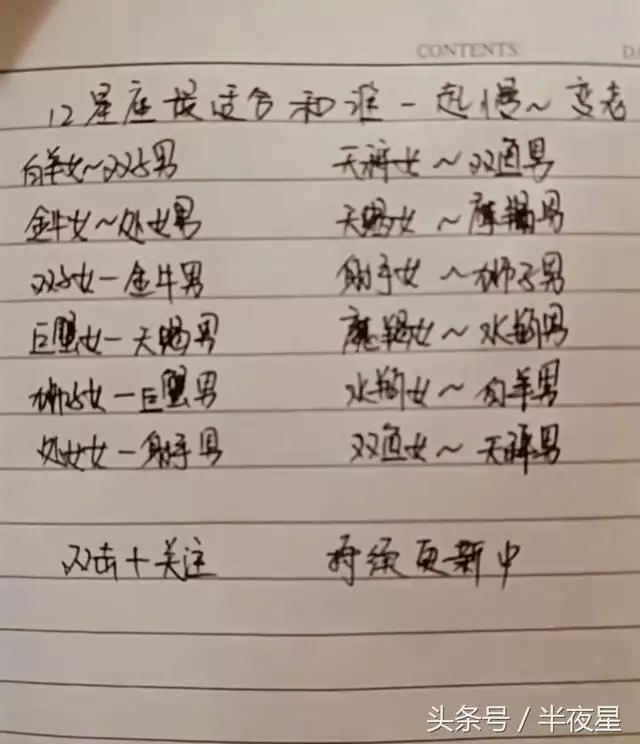 CONTENTS
DA
12星座最适合和谁一起慢~变老
白羊女~双子男
天秤女~双鱼男
金牛女~处女男
天蝎女~摩羯男
双子女-金牛男
射手女~狮子男
巨蟹女-天蝎男
魔羯女~水瓶男
狮子女-巨蟹男
水瓶女~白羊男
处女女-射手男
双鱼女~天秤男
双击+关注
持续更新中
头条号/半夜星